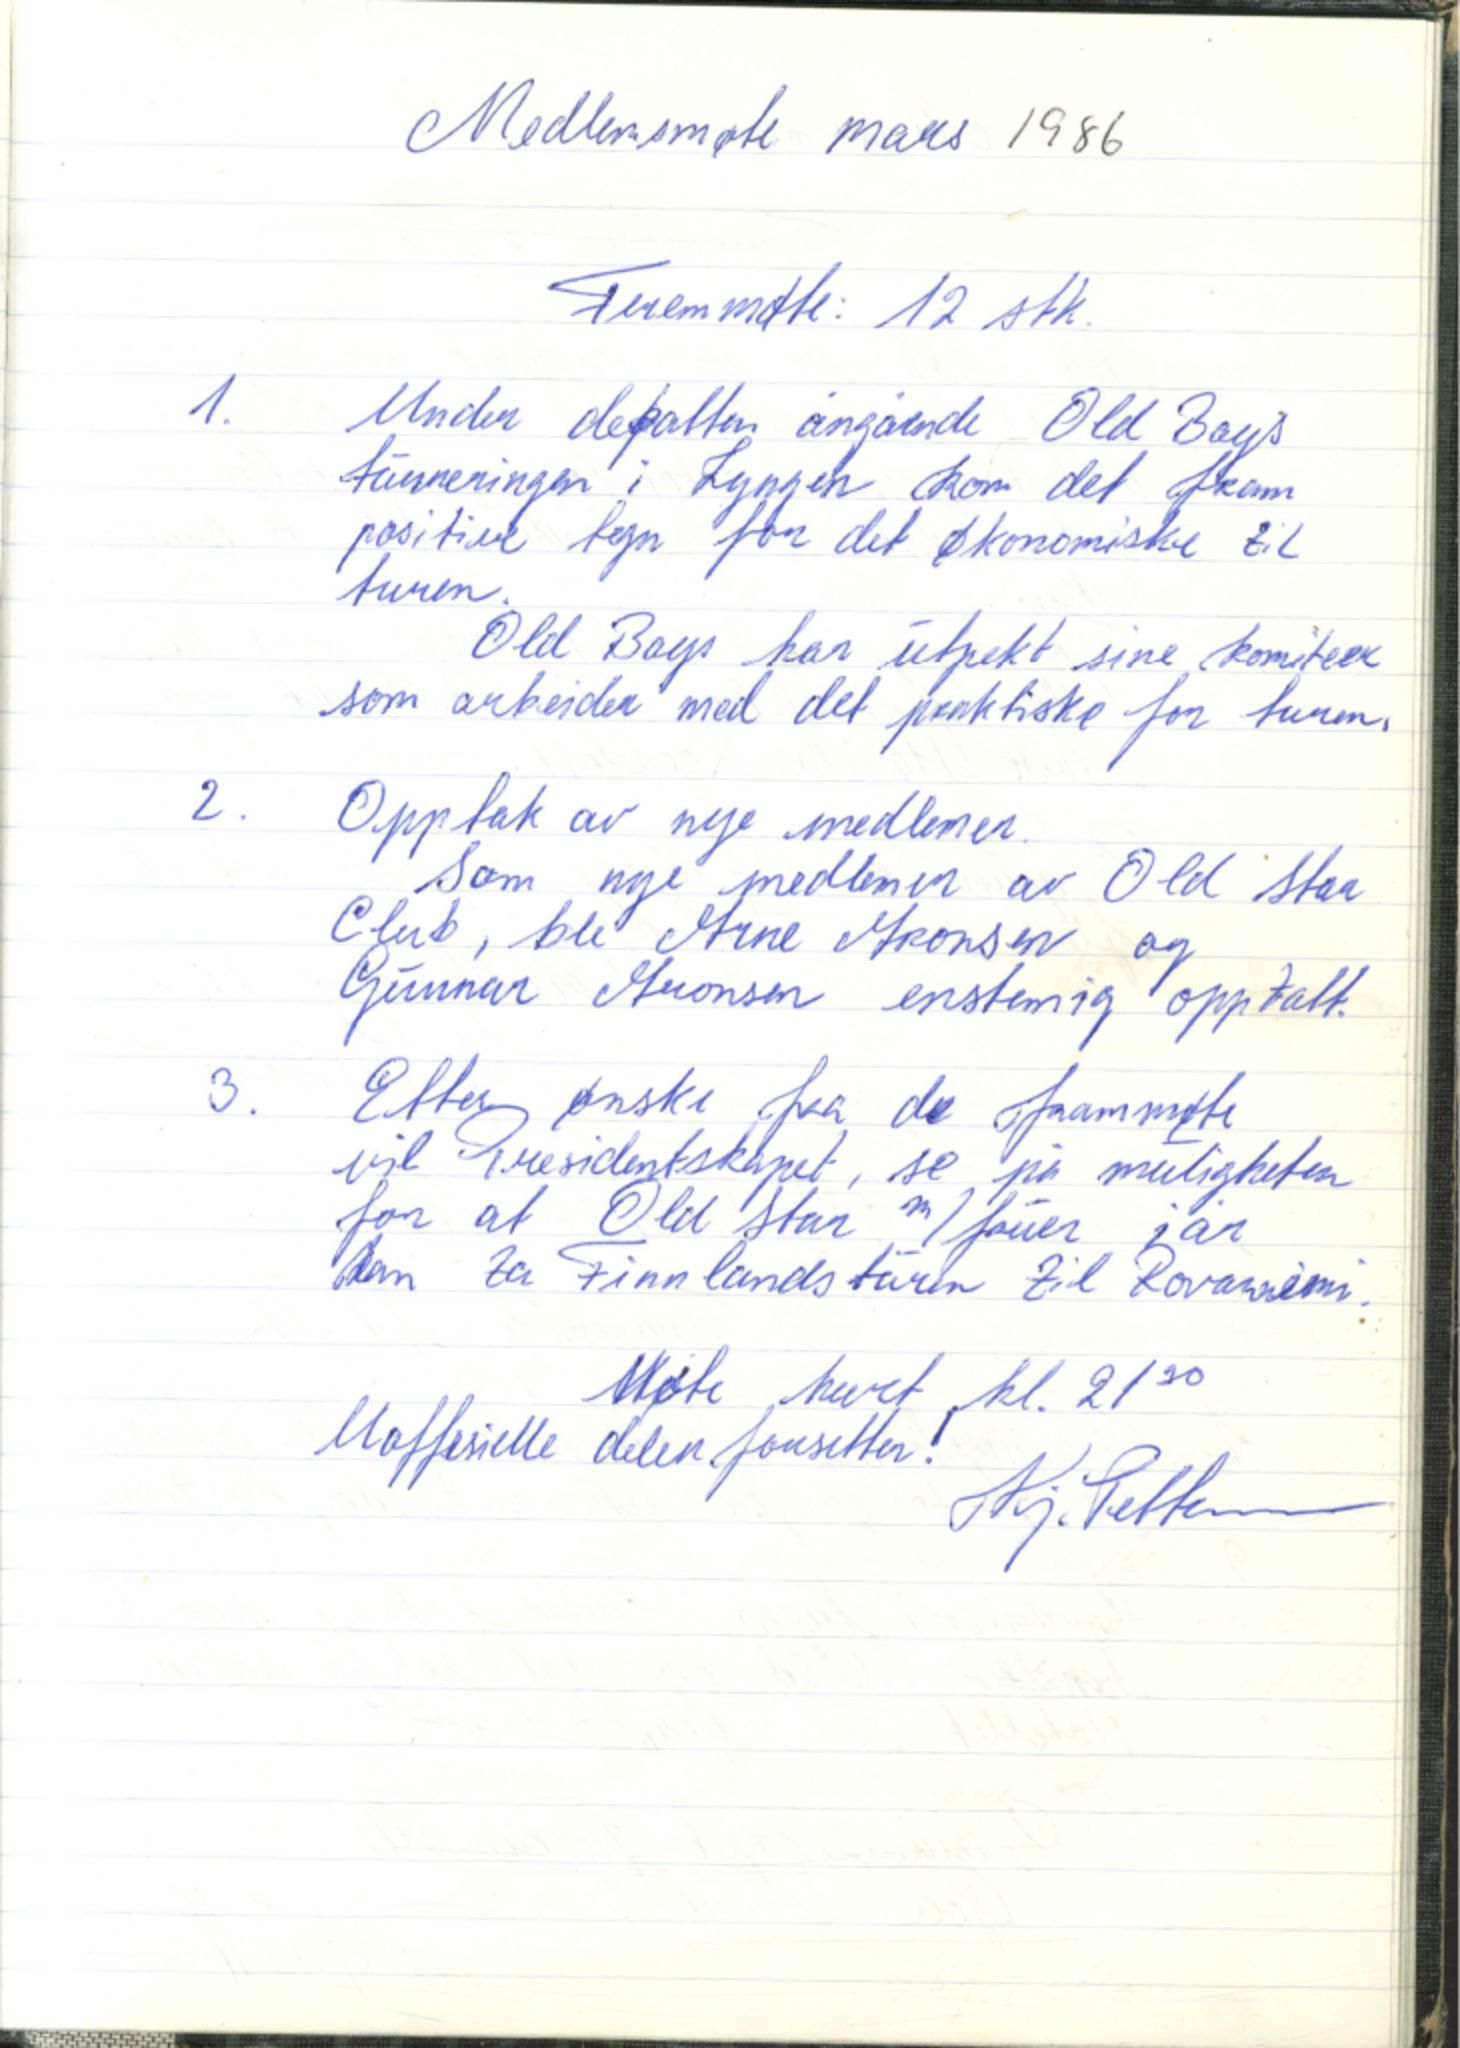 Medlemsmøte mars 1986
Fremmøte: 12 stk.
1. Under debatten angående Old Boys
turneringen i Lyngen kom det fram
positive tegn for det økonomiske til
turen.
Old Boys har utpekt sine komiteer
som arbeider med det praktiske for turen.
2. Opptak av nye medlemer.
Som nye medlemer av Old Star
Club, ble Arne Aronsen og
Gunnar Aronsen enstemig opptatt.
3. Etter ønske fra de frammøte
vil Presidentskapet, se på muligheten
for at Old Star m/fruer i år
kan ta Finnlandsturen til Rovaniemi.
Møte hevet kl. 21 30
Uoffesielle delen forsetter!
Kj. Pettersen